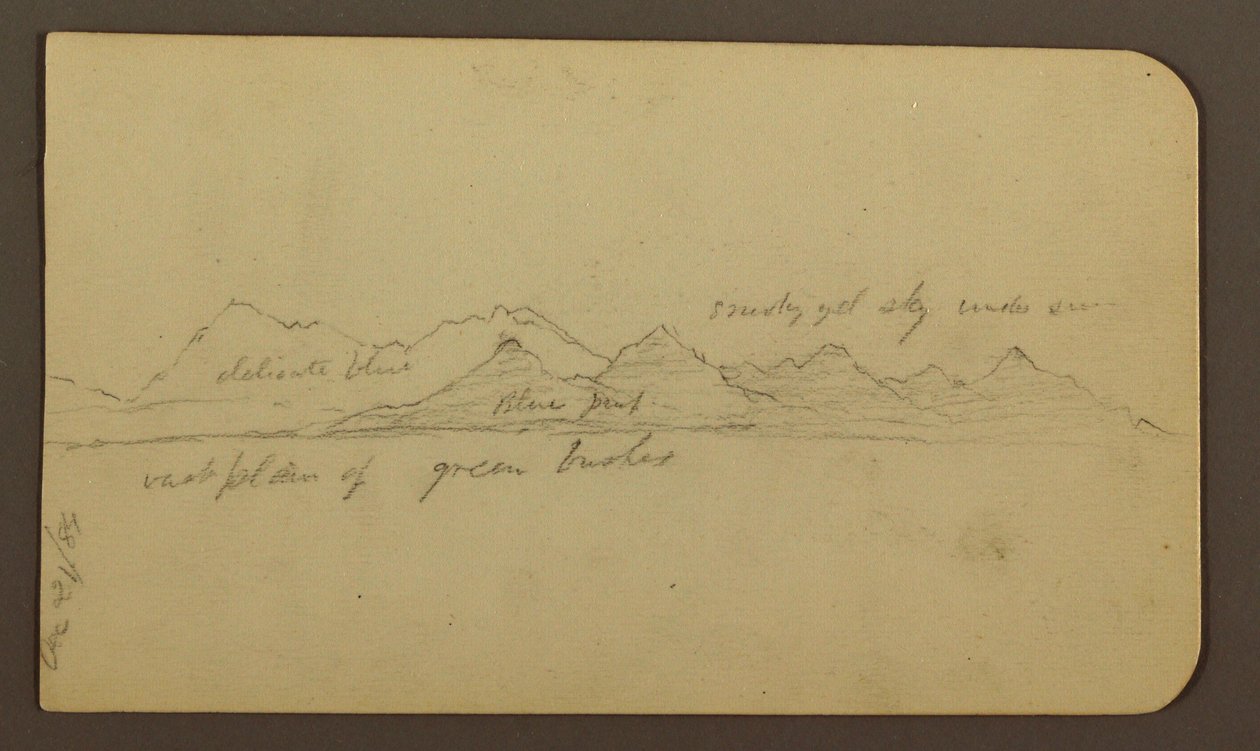 smoky yel sky under sun
delicate blue
Blue purp
vast plain of green bushes
21/85